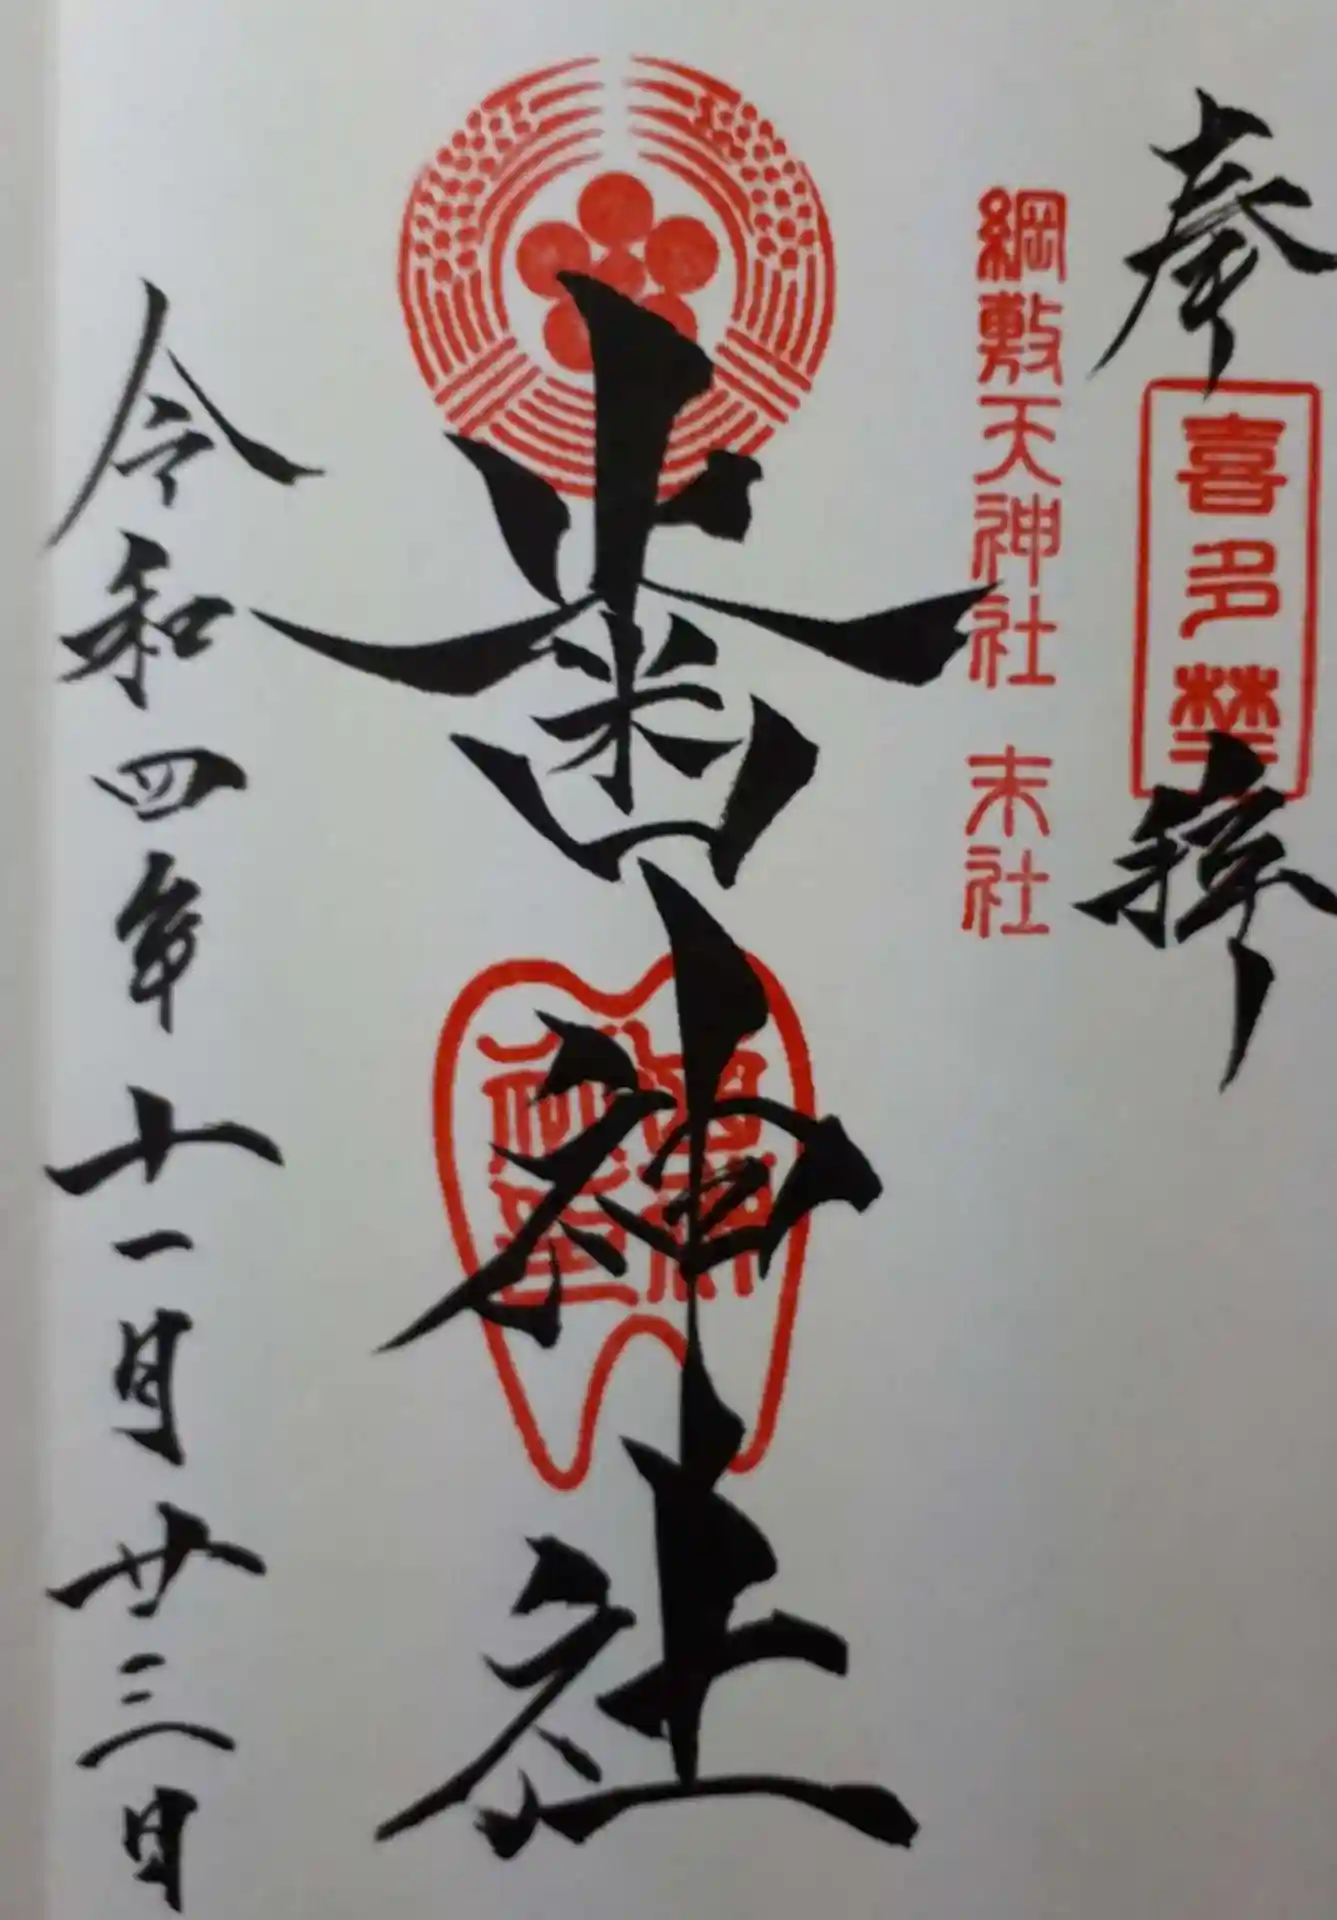 奉拝
喜多埜
綱敷天神社 末社
歯神社
歯神社璽
令和四年十一月廿三日